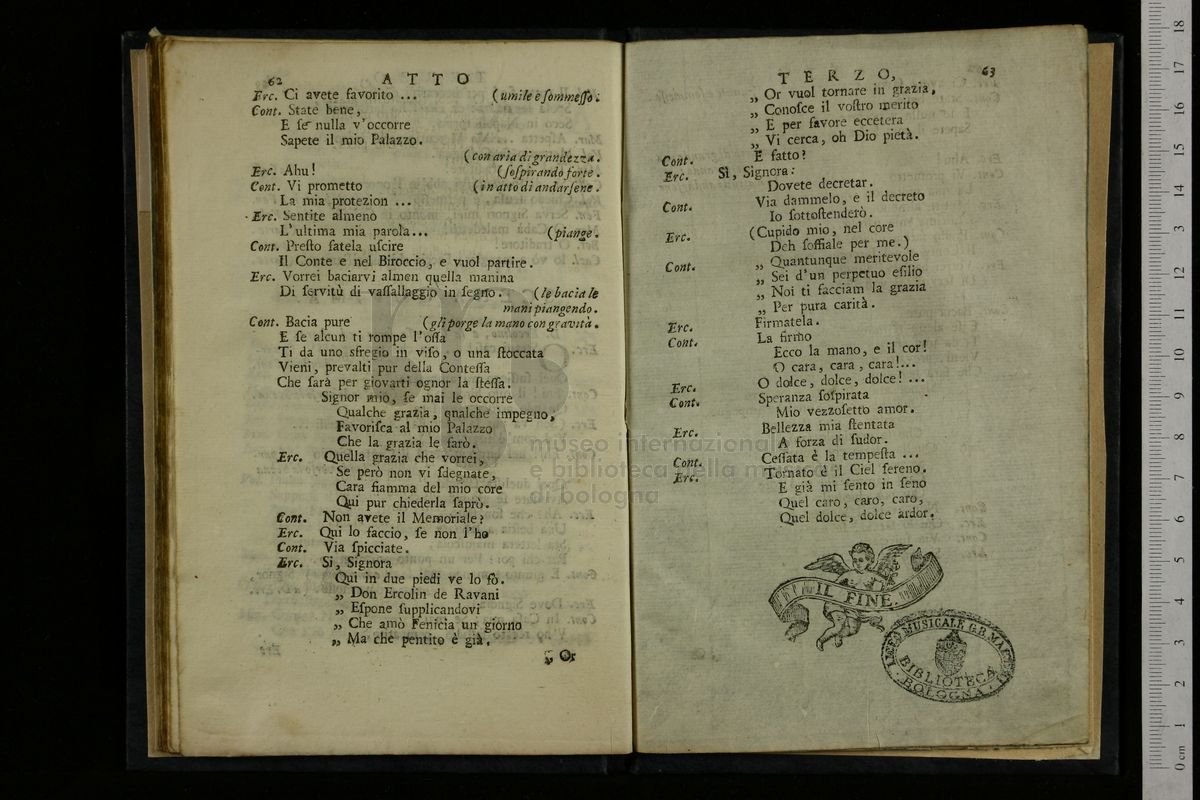 62 ATTO
Erc. Ci avete favorito ... (umile e ſommeſſo.
Cont. State bene,
E ſe nulla v'occorre
Sapete il mio Palazzo.
(con aria di grandezza.
Erc. Ahu! (ſoſpirando forte.
Cont. Vi prometto (in atto di andarſene.
La mia protezion ...
Erc. Sentite almeno
L'ultima mia parola... (piange.
Cont. Preſto fatela uſcire
Il Conte e nel Biroccio, e vuol partire.
Erc. Vorrei baciarvi almen quella manina
Di ſervitù di vaſſallaggio in ſegno. (le bacia le
mani piangendo.
Cont. Bacia pure (gli porge la mano con gravità.
E ſe alcun ti rompe l'oſſa
Ti da uno sfregio in viſo, o una ſtoccata
Vieni, prevalti pur della Conteſſa
Che ſarà per giovarti ognor la ſteſſa.
Signor mio, ſe mai le occorre
Qualche grazia, qualche impegno,
Favoriſca al mio Palazzo
Che la grazia le farò.
Erc. Quella grazia che vorrei,
Se però non vi ſdegnate,
Cara fiamma del mio core
Qui pur chiederla ſaprò.
Cont. Non avete il Memoriale?
Erc. Qui lo faccio, ſe non l'ho
Cont. Via ſpicciate.
Erc. Sì, Signora
Qui in due piedi ve lo fò.
„ Don Ercolin de Ravani
„ Eſpone ſupplicandovi
„ Che amò Fenicia un giorno
„ Ma che pentito è già.
„ Or
TERZO, 63
„ Or vuol tornare in grazia,
„ Conoſce il voſtro merito
„ E per favore eccetera
„ Vi cerca, oh Dio pietà.
Cont. E fatto?
Erc. Sì, Signora:
Dovete decretar.
Cont. Via dammelo, e il decreto
Io ſottoſtenderò.
Erc. (Cupido mio, nel core
Deh ſoffiale per me.)
Cont. „ Quantunque meritevole
„ Sei d'un perpetuo eſilio
„ Noi ti facciam la grazia
„ Per pura carità.
Erc. Firmatela.
Cont. La firmo
Ecco la mano, e il cor!
O cara, cara, cara!...
Erc. O dolce, dolce, dolce! ...
Cont. Speranza ſoſpirata
Mio vezzoſetto amor.
Erc. Bellezza mia ſtentata
A forza di ſudor.
Cont. Ceſſata è la tempeſta ...
Erc. Tornato è il Ciel ſereno.
E già mi ſento in ſeno
Quel caro, caro, caro,
Quel dolce, dolce ardor.
IL FINE.
LICEO MUSICALE G.B. MARTINI
BIBLIOTECA
BOLOGNA
museo internazionale
e biblioteca della musica
di bologna
0 cm 1 2 3 4 5 6 7 8 9 10 11 12 13 14 15 16 17 18